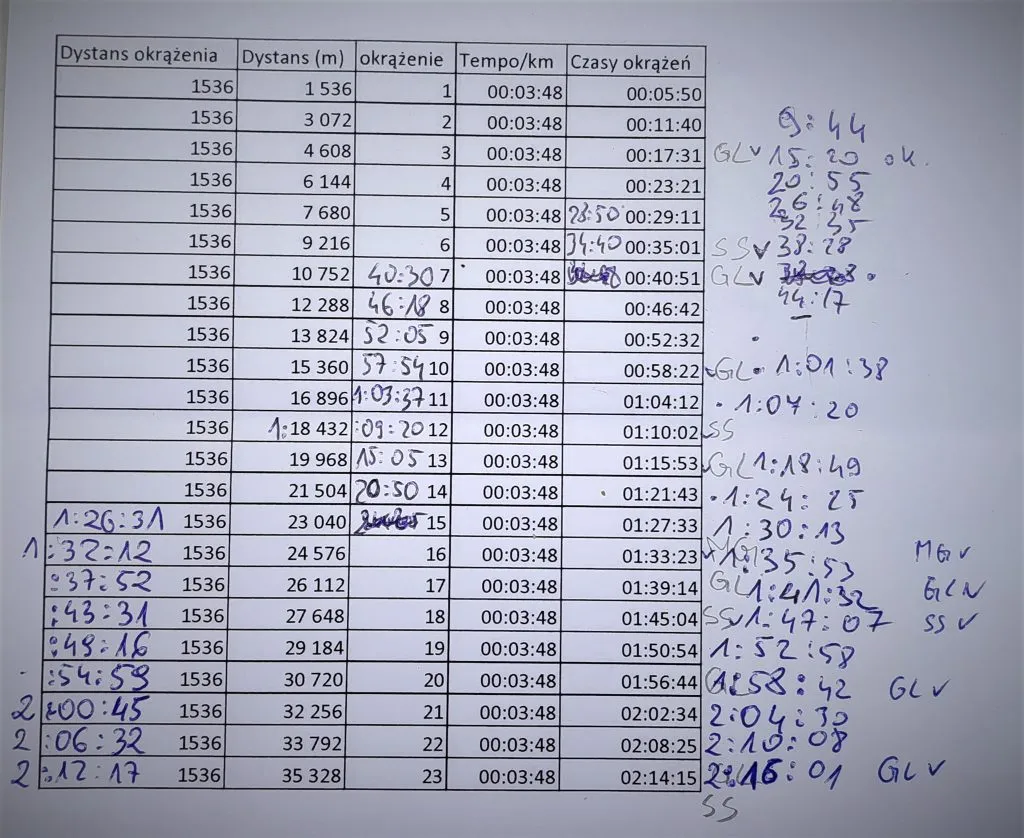 Dystans okrążenia Dystans (m) okrążenie Tempo/km Czasy okrążeń
1536 1 536 1 00:03:48 00:05:50
1536 3 072 2 00:03:48 00:11:40 9:44
1536 4 608 3 00:03:48 00:17:31 GL v 15:20 ok.
1536 6 144 4 00:03:48 00:23:21 20:55
1536 7 680 5 00:03:48 28:50 00:29:11 26:48
32:35
1536 9 216 6 00:03:48 34:40 00:35:01 SS v 38:28
1536 10 752 40:30 7 00:03:48 00:40:51 GL v
1536 12 288 46:18 8 00:03:48 00:46:42 44:17
1536 13 824 52:05 9 00:03:48 00:52:32
1536 15 360 57:54 10 00:03:48 00:58:22 GL 1:01:38
1536 16 896 1:03:37 11 00:03:48 01:04:12 1:07:20
1536 1: 18 432 :09:20 12 00:03:48 01:10:02 SS
1536 19 968 15:05 13 00:03:48 01:15:53 GL 1:18:49
1536 21 504 20:50 14 00:03:48 01:21:43 1:24:25
1:26:31 1536 23 040 15 00:03:48 01:27:33 1:30:13
1:32:12 1536 24 576 16 00:03:48 01:33:23 1:35:53 MG v
:37:52 1536 26 112 17 00:03:48 01:39:14 GL 1:41:32 GL v
:43:31 1536 27 648 18 00:03:48 01:45:04 SS v 1:47:07 SS v
:49:16 1536 29 184 19 00:03:48 01:50:54 1:52:58
:54:59 1536 30 720 20 00:03:48 01:56:44 1:58:42 GL v
2:00:45 1536 32 256 21 00:03:48 02:02:34 2:04:30
2:06:32 1536 33 792 22 00:03:48 02:08:25 2:10:08
2:12:17 1536 35 328 23 00:03:48 02:14:15 2:16:01 GL v
SS